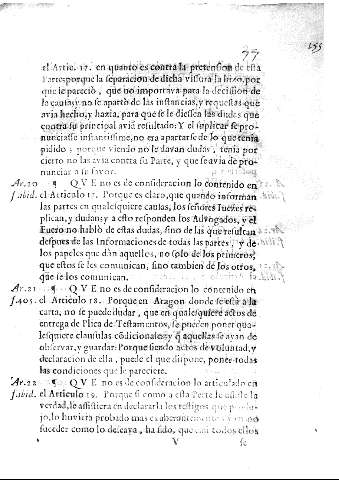 77
155
el Artic. 17. en quanto es contra la pretension de esta
Parte; porque la separacion de dicha visura la hizo, por
que le pareciò, que no importava para la decision de
la causa; y no se apartò de las instancias, y requestas que
avia hecho, y hazia, para que se le diessen las dudas que
contra su principal aviã resultado: Y el suplicar se pro-
nunciasse instantissime, no era apartarse de lo que tenia
pidido, porque viendo no le davan dudas, tenia por
cierto no las avia contra su Parte, y que se avia de pro-
nunciar a su favor.
Ar. 20 ¶ QVE no es de consideracion lo contenido en
f. abid. el Articulo 17. Porque es claro, que quando informan
las partes en qualquiere causa, los señores Iuezes re-
plican, y dudan; y a esto responden los Advogados, y el
Fuero no hablò de estas dudas, sino de las que resultan
despues de las Informaciones de todas las partes, y de
los papeles que dàn aquellos, no solo de los primeros,
que estos se les comunican, sino tambien de los otros,
que se los comunican.
Ar. 21 ¶ QVE no es de consideracion lo contenido en
f. 405. el Articulo 18. Porque en Aragon donde se està a la
carta, no se puede dudar, que en qualequiere actos de
entrega de Plica de Testamentos, se pueden poner qua-
lesquiere clausulas cõdicionales; y q̃ aquellas se ayan de
observar, y guardar: Porque siendo actos de voluntad, y
declaracion de ella, puede el que dispone, poner todas
las condiciones que le pareciere.
Ar. 22 ¶ QVE no es de consideracion lo articulado en
f. abid. el Articulo 19. Porque si como a esta Parte le assiste la
verdad, le assistiera en declararla los testigos que produ-
jo, lo huviera probado mas
suceder como lo deseaya, ha sido, que casi todos ellos
V
se